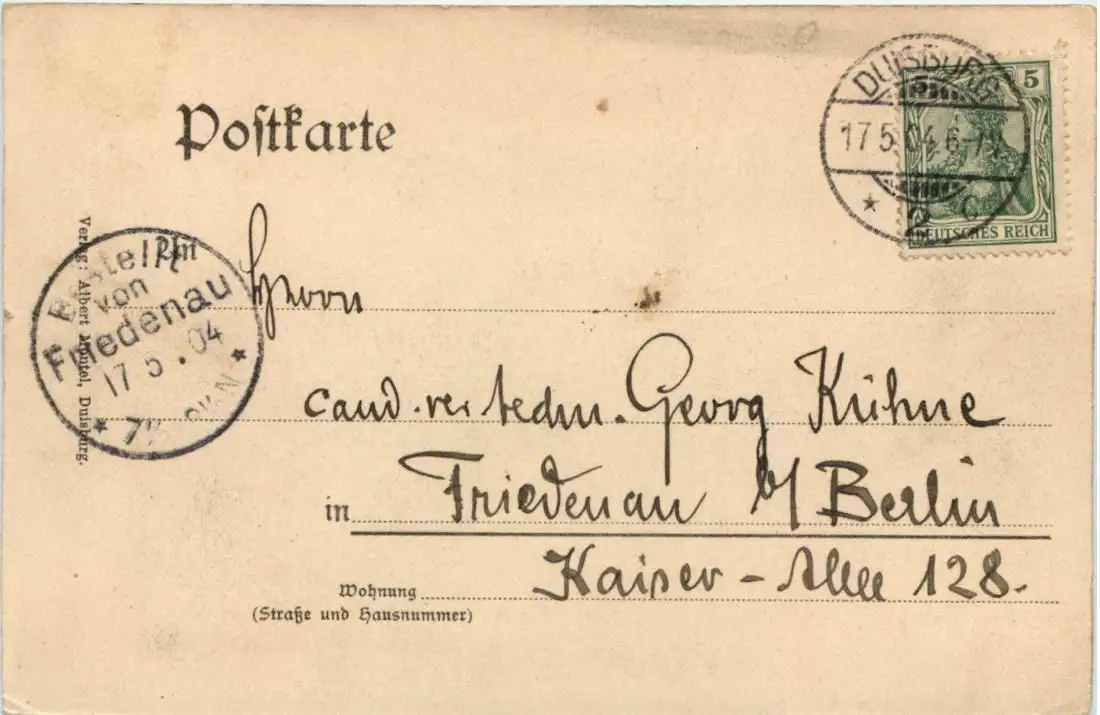 Postkarte
DUISBURG
17 5 04 6-7
* c
5
DEUTSCHES REICH
An
Herrn
cand. Georg Kühne
in Friedenau b/ Berlin
Kaiser-Allee 128.
Wohnung
(Straße und Hausnummer)
Bestellt
von
Friedenau
17 5.04
* 7 N *
Verlag: Albert Montel, Duisburg.